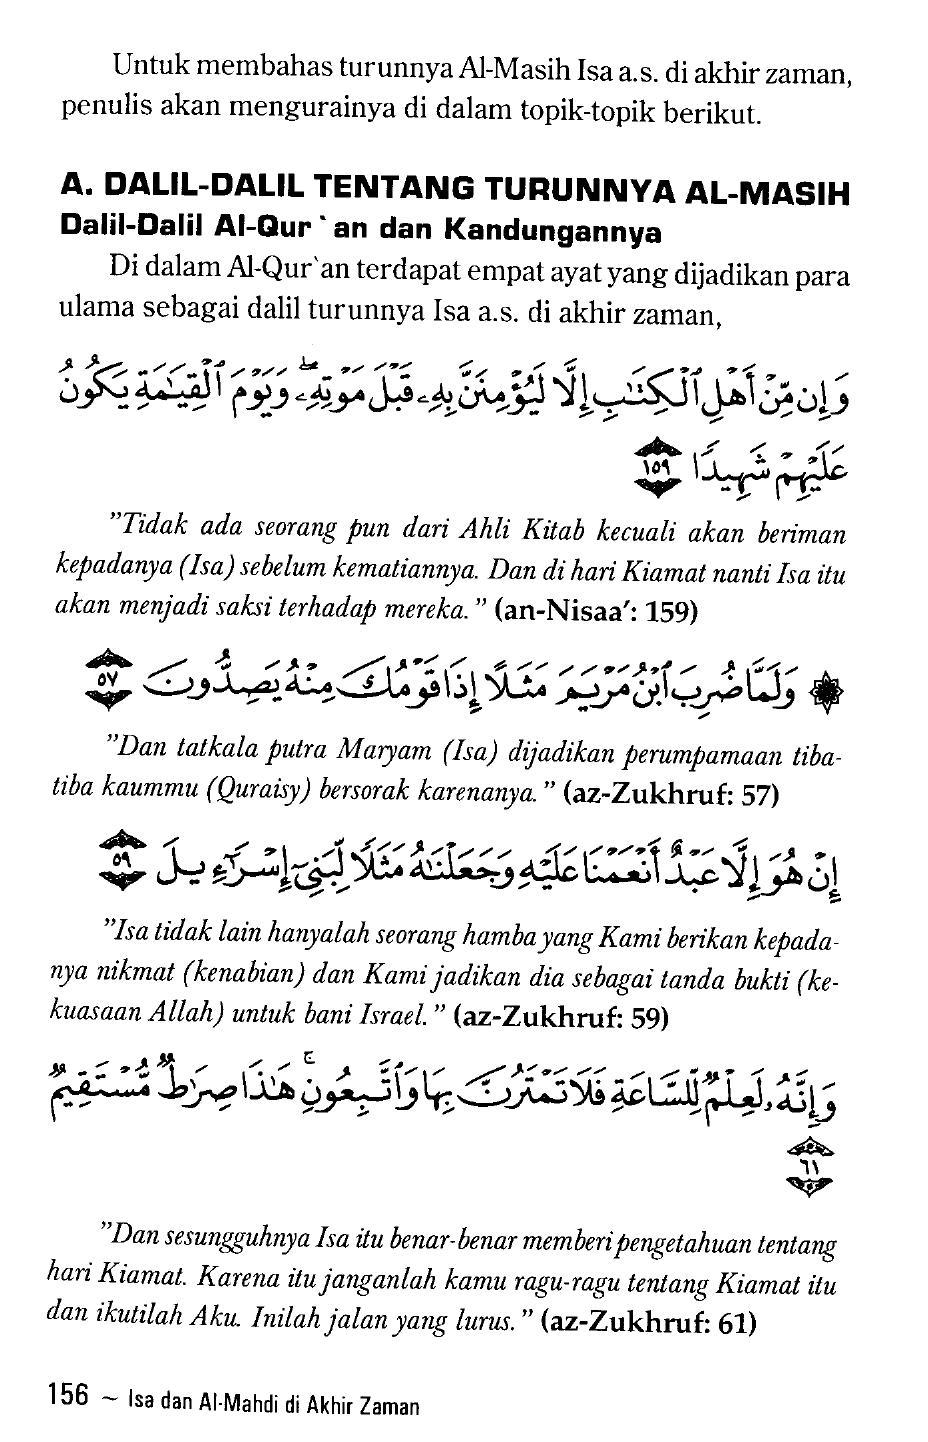 Untuk membahas turunnya Al-Masih Isa a.s. di akhir zaman,
penulis akan mengurainya di dalam topik-topik berikut.
A. DALIL-DALIL TENTANG TURUNNYA AL-MASIH
Dalil-Dalil Al-Qur`an dan Kandungannya
Di dalam Al-Qur`an terdapat empat ayat yang dijadikan para
ulama sebagai dalil turunnya Isa a.s. di akhir zaman,
وَإِن مِّنْ أَهْلِ ٱلْكِتَٰبِ إِلَّا لَيُؤْمِنَنَّ بِهِۦ قَبْلَ مَوْتِهِۦ ۖ وَيَوْمَ ٱلْقِيَٰمَةِ يَكُونُ
عَلَيْهِمْ شَهِيدًا ١٥٩
”Tidak ada seorang pun dari Ahli Kitab kecuali akan beriman
kepadanya (Isa) sebelum kematiannya. Dan di hari Kiamat nanti Isa itu
akan menjadi saksi terhadap mereka.” (an-Nisaa’: 159)
۞ وَلَمَّا ضُرِبَ ٱبْنُ مَرْيَمَ مَثَلًا إِذَا قَوْمُكَ مِنْهُ يَصِدُّونَ ٥٧
”Dan tatkala putra Maryam (Isa) dijadikan perumpamaan tiba-
tiba kaummu (Quraisy) bersorak karenanya.” (az-Zukhruf: 57)
إِنْ هُوَ إِلَّا عَبْدٌ أَنْعَمْنَا عَلَيْهِ وَجَعَلْنَٰهُ مَثَلًا لِّبَنِىٓ إِسْرَٰٓءِيلَ ٥٩
”Isa tidak lain hanyalah seorang hamba yang Kami berikan kepada-
nya nikmat (kenabian) dan Kami jadikan dia sebagai tanda bukti (ke-
kuasaan Allah) untuk bani Israel.” (az-Zukhruf: 59)
وَإِنَّهُۥ لَعِلْمٌ لِّلسَّاعَةِ فَلَا تَمْتَرُنَّ بِهَا وَٱتَّبِعُونِ ۚ هَٰذَا صِرَٰطٌ مُّسْتَقِيمٌ
٦١
”Dan sesungguhnya Isa itu benar-benar memberi pengetahuan tentang
hari Kiamat. Karena itu janganlah kamu ragu-ragu tentang Kiamat itu
dan ikutilah Aku. Inilah jalan yang lurus.” (az-Zukhruf: 61)
156 ~ Isa dan Al-Mahdi di Akhir Zaman